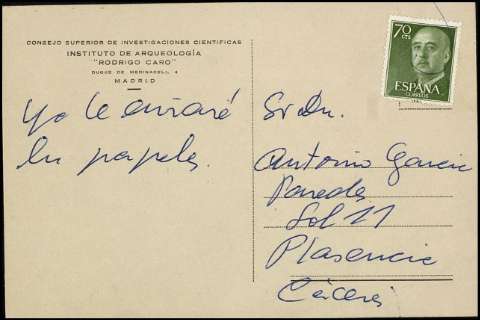 CONSEJO SUPERIOR DE INVESTIGACIONES CIENTIFICAS
INSTITUTO DE ARQUEOLOGÍA
"RODRIGO CARO"
DUQUE DE MEDINACELI, 4
MADRID
Ya le avisaré
sus papeles.
70
CTS
ESPAÑA
CORREOS
Sr Dn.
Antonio Garcia
Paredes
Sol 11
Plasencia
Cáceres